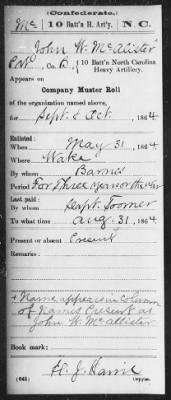 (Confederate.)
Mc 10 Batt'n H. Art'y. N.C.
John W. McAlister
Co. B, 10 Batt'n North Carolina
Heavy Artillery.
Appears on
Company Muster Roll
of the organization named above,
for Sept. & Oct., 1864
Enlisted:
When May 31, 1864
Where Wake
By whom Barnes
Period For Three years or the war
Last paid:
By whom Capt. Toomer
To what time Aug. 31, 1864
Present or absent Present
Remarks:
+ Name appears in column
of Names Present as
John W. McAllister
Book mark:
(642) Copyist.